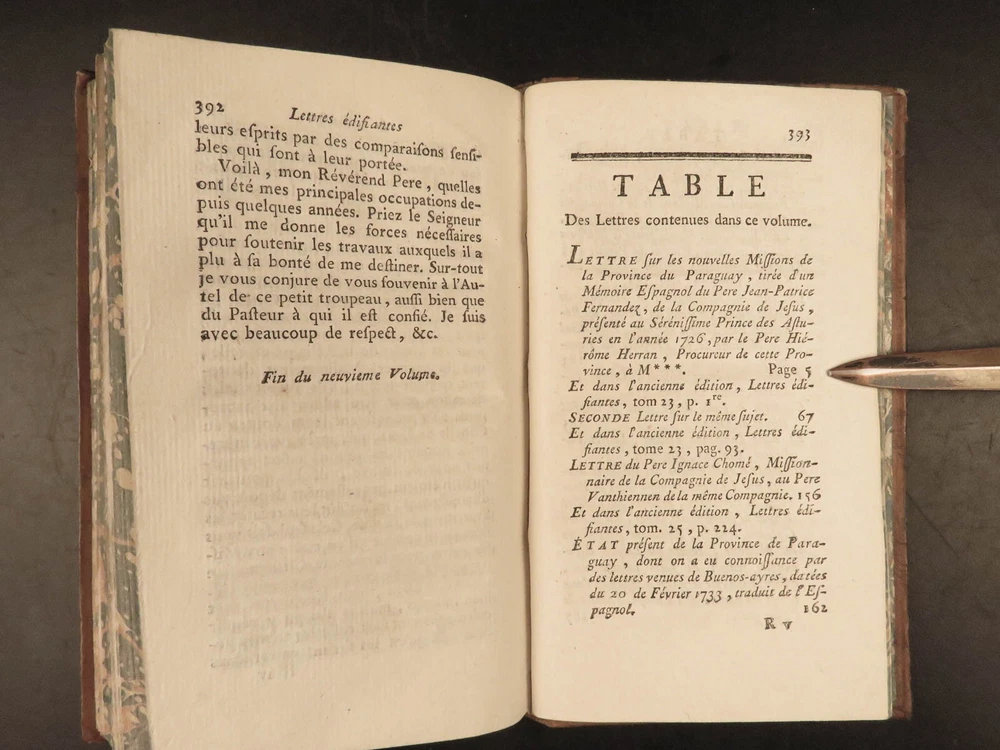 392 Lettres édifiantes
leurs eſprits par des comparaiſons ſenſi-
bles qui ſont à leur portée.
Voilà, mon Révérend Pere, quelles
ont été mes principales occupations de-
puis quelques années. Priez le Seigneur
qu'il me donne les forces néceſſaires
pour ſoutenir les travaux auxquels il a
plu à ſa bonté de me deſtiner. Sur-tout
je vous conjure de vous ſouvenir à l'Au-
tel de ce petit troupeau, auſſi bien que
du Paſteur à qui il eſt confié. Je ſuis
avec beaucoup de reſpect, &c.
Fin du neuvieme Volume.
393
TABLE
Des Lettres contenues dans ce volume.
LETTRE ſur les nouvelles Miſſions de
la Province du Paraguay, tirée d'un
Mémoire Eſpagnol du Pere Jean-Patrice
Fernandez, de la Compagnie de Jeſus,
préſenté au Séréniſſime Prince des Aſtu-
ries en l'année 1726, par le Pere Hié-
rôme Herran, Procureur de cette Pro-
vince, à M***. Page 5
Et dans l'ancienne édition, Lettres édi-
fiantes, tom 23, p. 1re.
SECONDE Lettre ſur le même ſujet. 67
Et dans l'ancienne édition, Lettres édi-
fiantes, tome 23, pag. 93.
LETTRE du Pere Ignace Chomé, Miſſion-
naire de la Compagnie de Jeſus, au Pere
Vanthiennen de la même Compagnie. 156
Et dans l'ancienne édition, Lettres édi-
fiantes, tom. 25, p. 224.
ÉTAT préſent de la Province de Para-
guay, dont on a eu connoiſſance par
des lettres venues de Buenos-ayres, datées
du 20 de Février 1733, traduit de l'Eſ-
pagnol. 162
R v